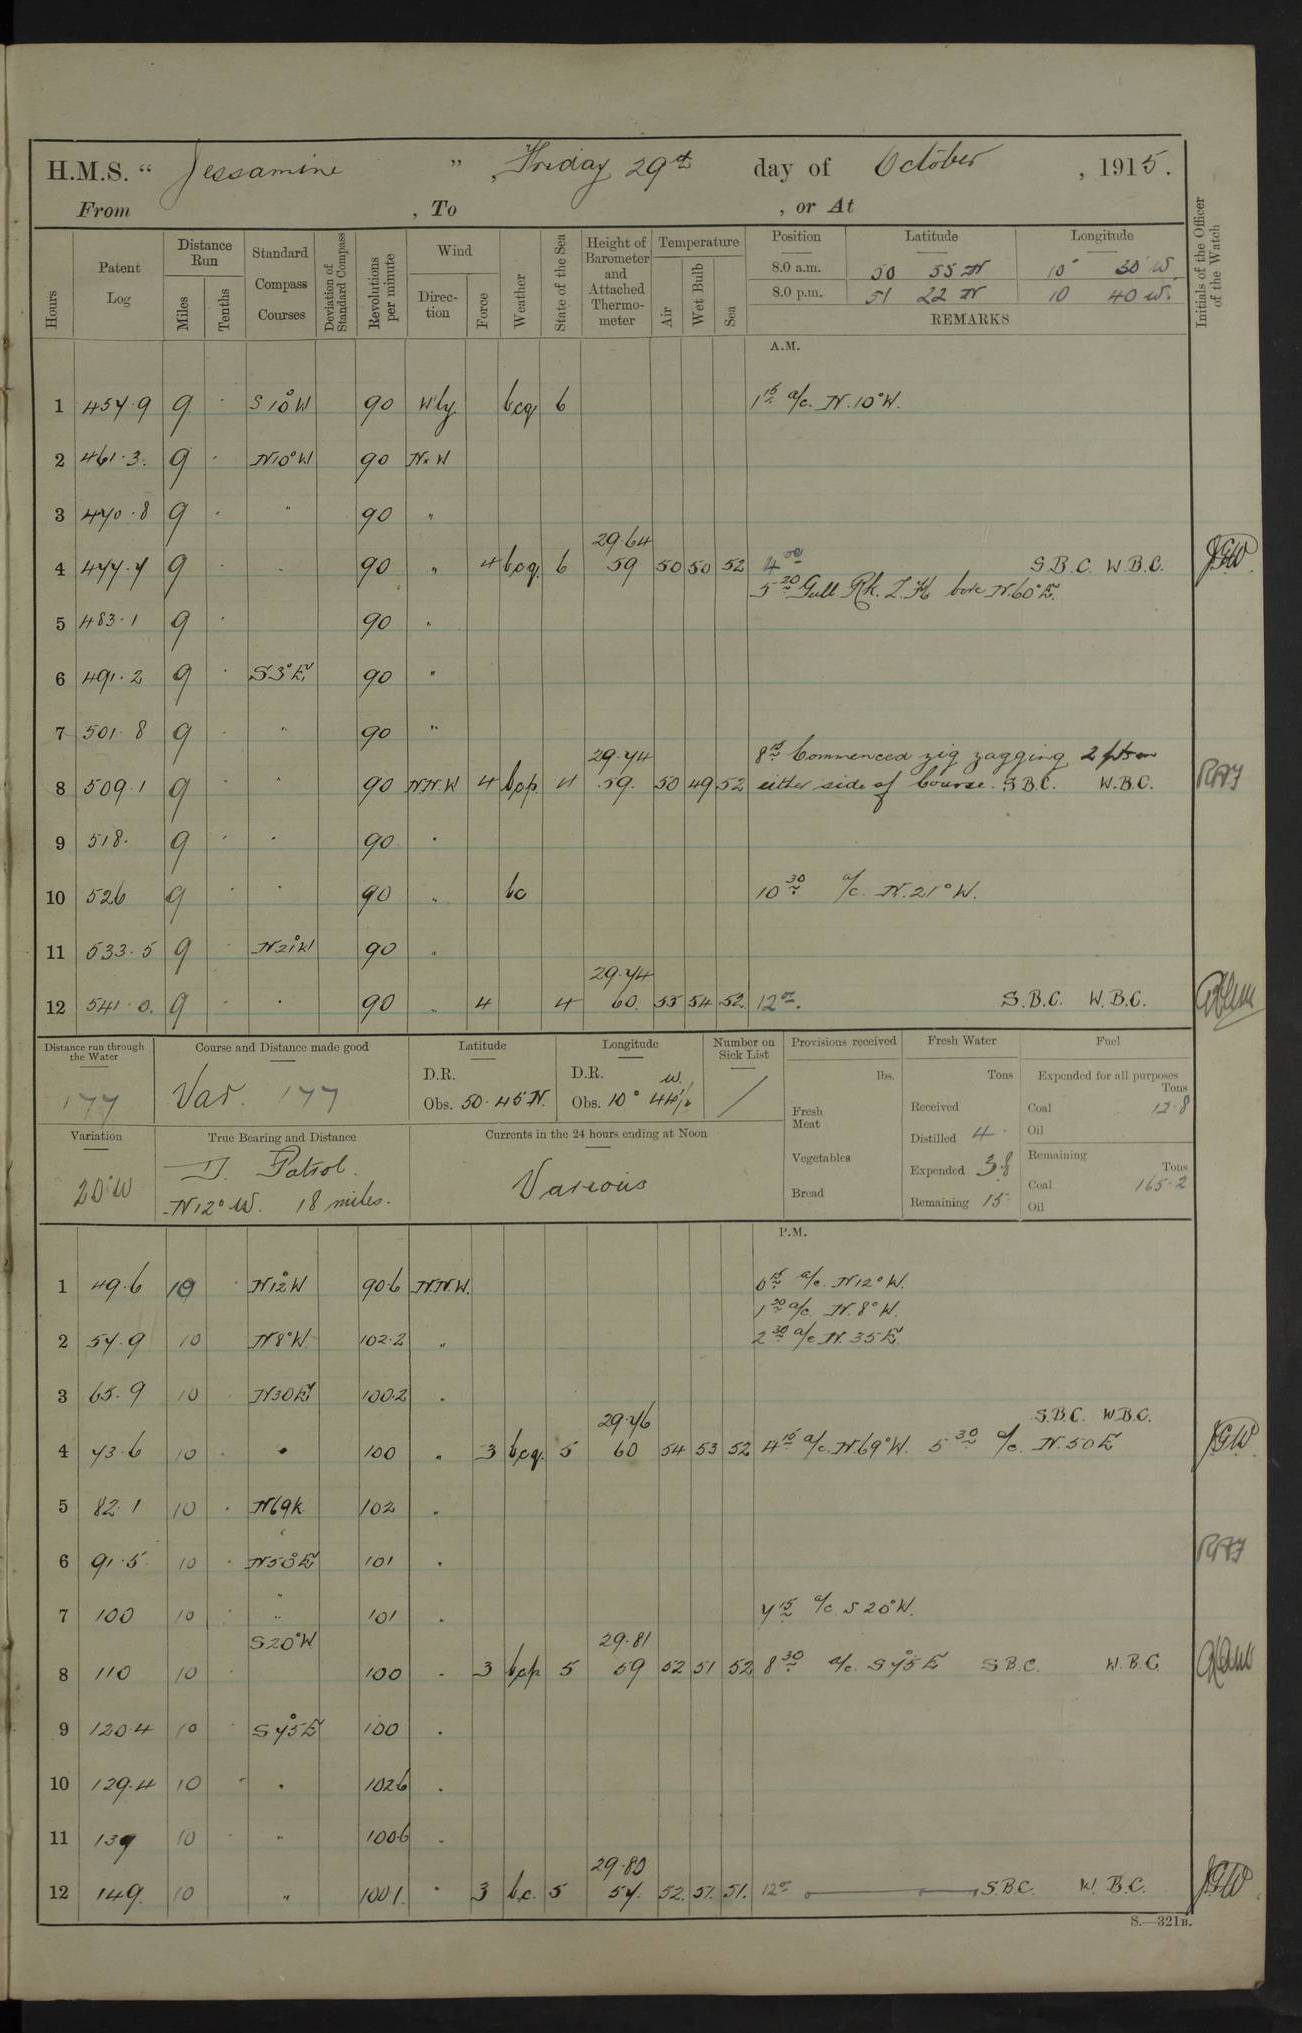 H.M.S. " Jessamine ", Friday 29th day of October, 1915.
From , To , or At
Hours
Patent Log
Distance Run
Miles
Tenths
Standard Compass Courses
Deviation of Standard Compass
Revolutions per minute
Wind
Direction
Force
Weather
State of the Sea
Height of Barometer and Attached Thermometer
Temperature
Air
Wet Bulb
Sea
Position Latitude Longitude
8.0 a.m. 50 55 N 10 30 W
8.0 p.m. 51 22 N 10 40 W.
REMARKS
Initials of the Officer of the Watch
A.M.
1 457.9 9 . S 10° W 90 Wly bcq 6 1 15 a/c. N.10°W.
2 461.3. 9 . N10°W 90 N.W
3 470.8 9 . " 90 "
29.64
4 477.7 9 . . 90 " 4 bcq. 6 59 50 50 52 4 00 S.B.C. W.B.C. JGW
5 20 Gull Rk. L.H bore N.60°E.
5 483.1 9 . 90 "
6 491.2 9 . S3°E 90 "
7 501.8 9 " 90 "
29.74 8 15 Commenced zig zagging 2 pts on
8 509.1 9 . " 90 N.N.W 4 bcp. 4 59. 50 49 52 either side of Course. S.B.C. W.B.C.
9 518. 9 . . 90 .
10 526 9 . . 90 " bc 10 30 a/c. N.21°W.
11 533.5 9 . N21°W 90 "
29.74
12 541.0. 9 . . 90 " 4 4 60. 55 54 52. 12 00. S.B.C. W.B.C.
Distance run through the Water
177
Course and Distance made good
Var. 177
Latitude
D.R.
Obs. 50.45 N.
Longitude
D.R.
Obs. 10° 44½ W.
Number on Sick List
/
Provisions received
lbs.
Fresh Meat
Vegetables
Bread
Fresh Water
Tons
Received
Distilled 4
Expended 3.8
Remaining 15
Fuel
Expended for all purposes
Tons
Coal 12.8
Oil
Remaining
Tons
Coal 165.2
Oil
Variation
20°W
True Bearing and Distance
Patrol.
N12°W. 18 miles.
Currents in the 24 hours ending at Noon
Various
P.M.
1 49.6 10 . N12°W 90.6 N.N.W. 0 15 a/c. N12°W.
1 30 a/c. N.8°W.
2 57.9 10 N8°W 102.2 " 2 30 a/c N. 35 E
3 65.9 10 . N30E 100.2 .
29.76 S.B.C. W.B.C.
4 73.6 10 . . 100 " 3 bcq. 5 60 54 53 52 4 15 a/c. N.69°W. 5 30 a/c. N.50E JGW
5 82.1 10 . N69W 102 .
6 91.5 10 . N50°E 101 .
7 100 10 . " 101 . 7 15 a/c S 20°W.
S20°W 29.81
8 110 10 . 100 . 3 bcp 5 59 52 51 52 8 30 a/c. S 75°E S.B.C. W.B.C
9 120.4 10 . S 75°E 100 .
10 129.4 10 . . 102.6 .
11 139 10 . " 100.6 .
29.80
12 149. 10 " 100.1. " 3 bc. 5 57. 52. 51. 51. 12 00 S.B.C. W.B.C. JGW
S.—321B.